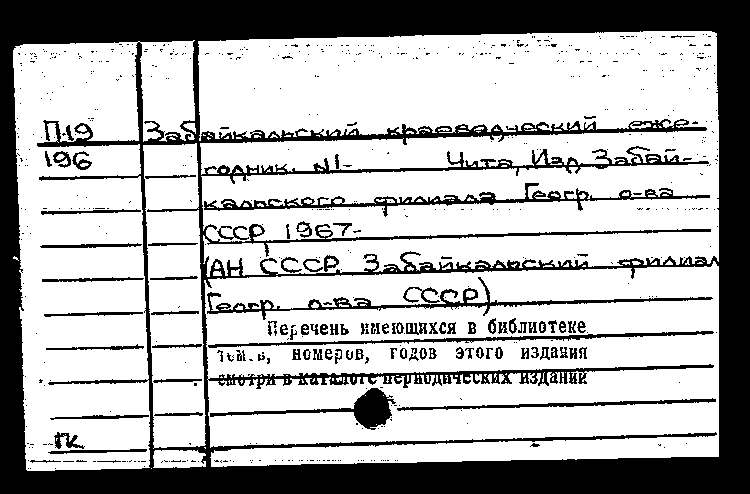 П-19 Забайкальский краеведческий еже-
196 годник. N1- Чита, Изд. Забай-
кальского филиала Геогр. о-ва
СССР, 1967-
(АН СССР. Забайкальский филиал
Геогр. о-ва СССР)
Перечень имеющихся в библиотеке
томов, номеров, годов этого издания
смотри в каталоге периодических изданий
ГК